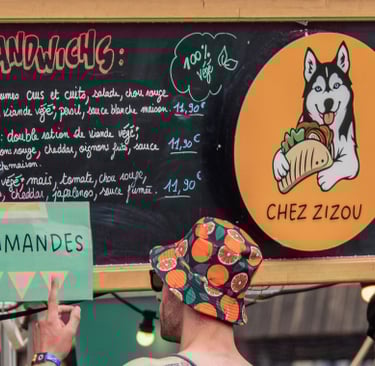 ANDWICHS:
100%
végé
umes crus et cuits, salade, chou rouge
viande végé, persil, sauce blanche maison. 11,90€
: double ration de viande végé,
rouge, cheddar, oignons frits, sauce 11,90€
maison.
végé, maïs, tomate, chou rouge,
, cheddar, jalapenos, sauce fumée. 11,90€
MANDES
CHEZ ZIZOU